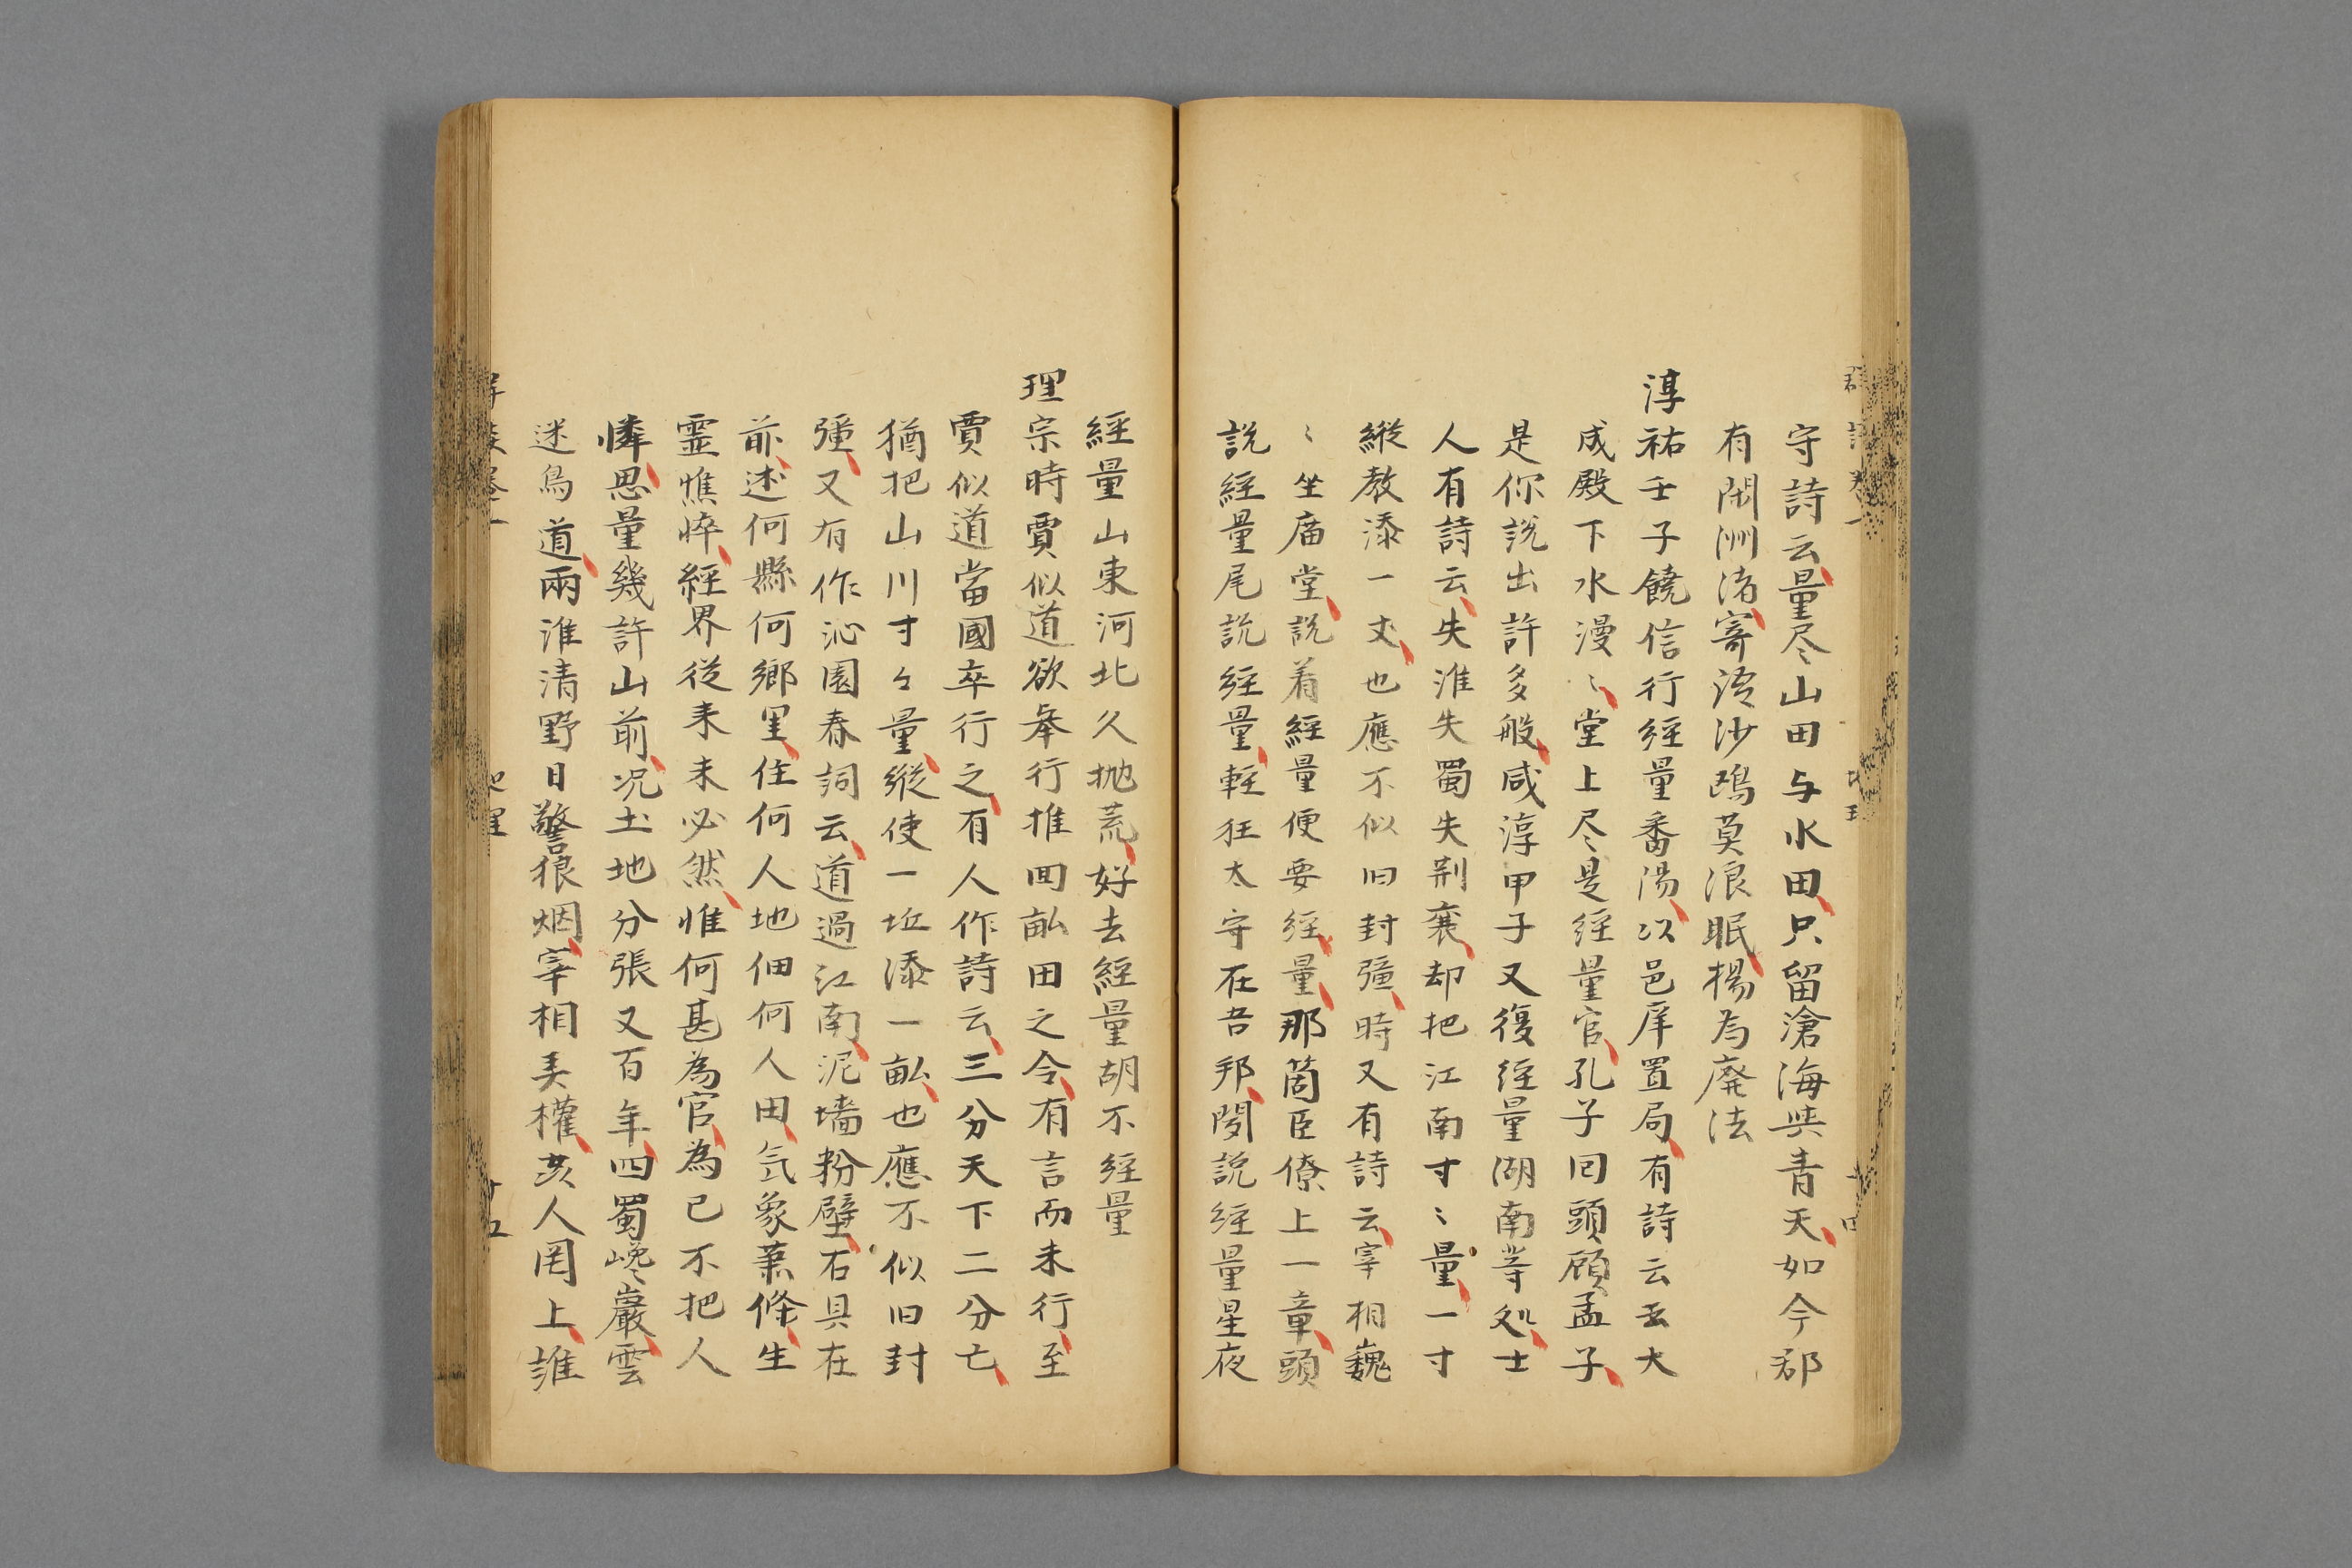 守詩云量尽山田与水田只留滄海與青天如今郡
有閑洲渚寄語沙鴎莫浪眠楊為廃法
淳祐壬子饒信行経量番陽以邑庠置局有詩云大
成殿下水漫〻堂上尽是経量官孔子回頭顧孟子
是你説出許多般咸淳甲子又復経量湖南等処士
人有詩云失淮失蜀失荆襄却把江南寸〻量一寸
縱教添一丈也應不似旧封彊時又有詩云宰相巍
〻坐庙堂説着經量便要経量那箇臣僚上一章頭
説經量尾説経量軽狂太守在吾邦聞説経量星夜
經量山東河北久抛荒好去經量胡不経量
理宗時賈似道欲举行推囬畆田之令有言而未行至
賈似道當國卒行之有人作詩云三分天下二分亡
猶把山川寸々量縱使一坵添一畆也應不似旧封
彊又有作沁園春詞云道過江南泥墻粉壁石具在
前述何縣何鄉里住何人地佃何人田気象蕭條生
靈憔悴經界從来未必然惟何甚為官為己不把人
憐思量幾許山前况土地分張又百年四蜀巉巖雲
迷鳥道兩淮清野日警狼烟宰相美權亥人罔上誰